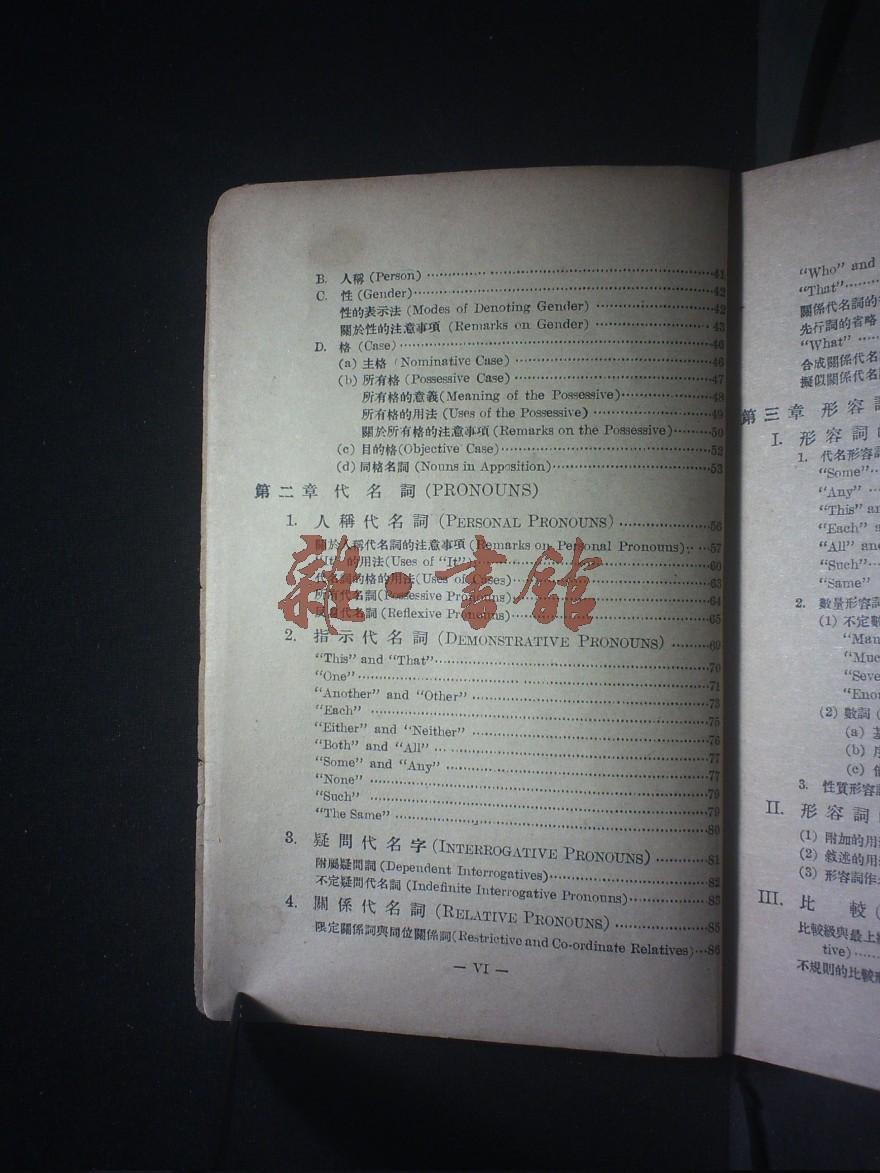 B. 人稱 (Person) 41
C. 性 (Gender) 42
性的表示法 (Modes of Denoting Gender) 42
關於性的注意事項 (Remarks on Gender) 43
D. 格 (Case) 46
(a) 主格 (Nominative Case) 46
(b) 所有格 (Possessive Case) 47
所有格的意義(Meaning of the Possessive) 48
所有格的用法 (Uses of the Possessive) 49
關於所有格的注意事項 (Remarks on the Possessive) 50
(c) 目的格(Objective Case) 52
(d) 同格名詞 (Nouns in Apposition) 53
第二章 代名詞 (PRONOUNS)
1. 人稱代名詞 (PERSONAL PRONOUNS) 56
關於人稱代名詞的注意事項 (Remarks on Personal Pronouns) 57
"It" 的用法(Uses of "It") 60
代名詞的格的用法(Uses of Cases) 63
所有代名詞(Possessive Pronouns) 64
代名詞 (Reflexive Pronouns) 65
2. 指示代名詞 (DEMONSTRATIVE PRONOUNS) 69
"This" and "That" 70
"One" 71
"Another" and "Other" 73
"Each" 75
"Either" and "Neither" 76
"Both" and "All" 77
"Some" and "Any" 77
"None" 79
"Such" 79
"The Same" 80
3. 疑問代名字 (INTERROGATIVE PRONOUNS) 81
附屬疑問詞 (Dependent Interrogatives) 82
不定疑問代名詞 (Indefinite Interrogative Pronouns) 83
4. 關係代名詞 (RELATIVE PRONOUNS) 85
限定關係詞與同位關係詞(Restrictive and Co-ordinate Relatives) 86
— VI —
雜·書館
"Who" and
"That"
關係代名詞的
先行詞的省略
"What"
合成關係代名
擬似關係代名
第三章 形容
I. 形容詞
1. 代名形容
"Some"
"Any"
"This" an
"Each" a
"All" and
"Such"
"Same"
2. 數量形容
(1) 不定數
"Man
"Muc
"Seve
"Enou
(2) 數詞 (
(a) 
(b) 
(c) 
3. 性質形容
II. 形容詞
(1) 附加的用
(2) 敘述的用
(3) 形容詞作
III. 比較 (
比較級與最上
tive)
不規則的比較